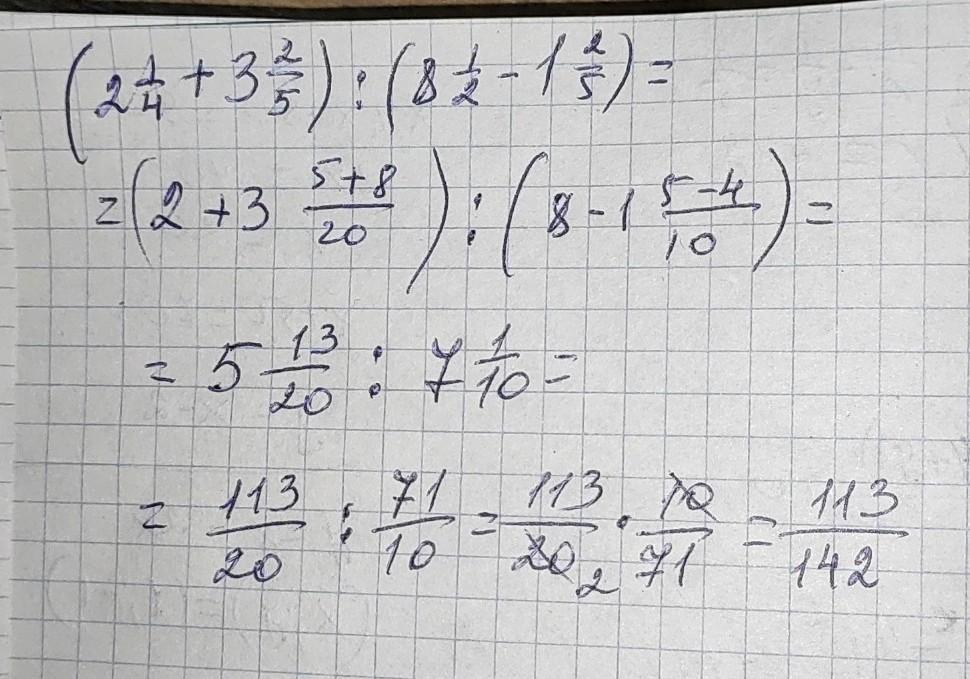 (2 1/4 + 3 2/5) : (8 1/2 - 1 2/5) =
= (2 + 3 (5+8)/20) : (8 - 1 (5-4)/10) =
= 5 13/20 : 7 1/10 =
= 113/20 : 71/10 = 113/20 2 · 10/71 = 113/142